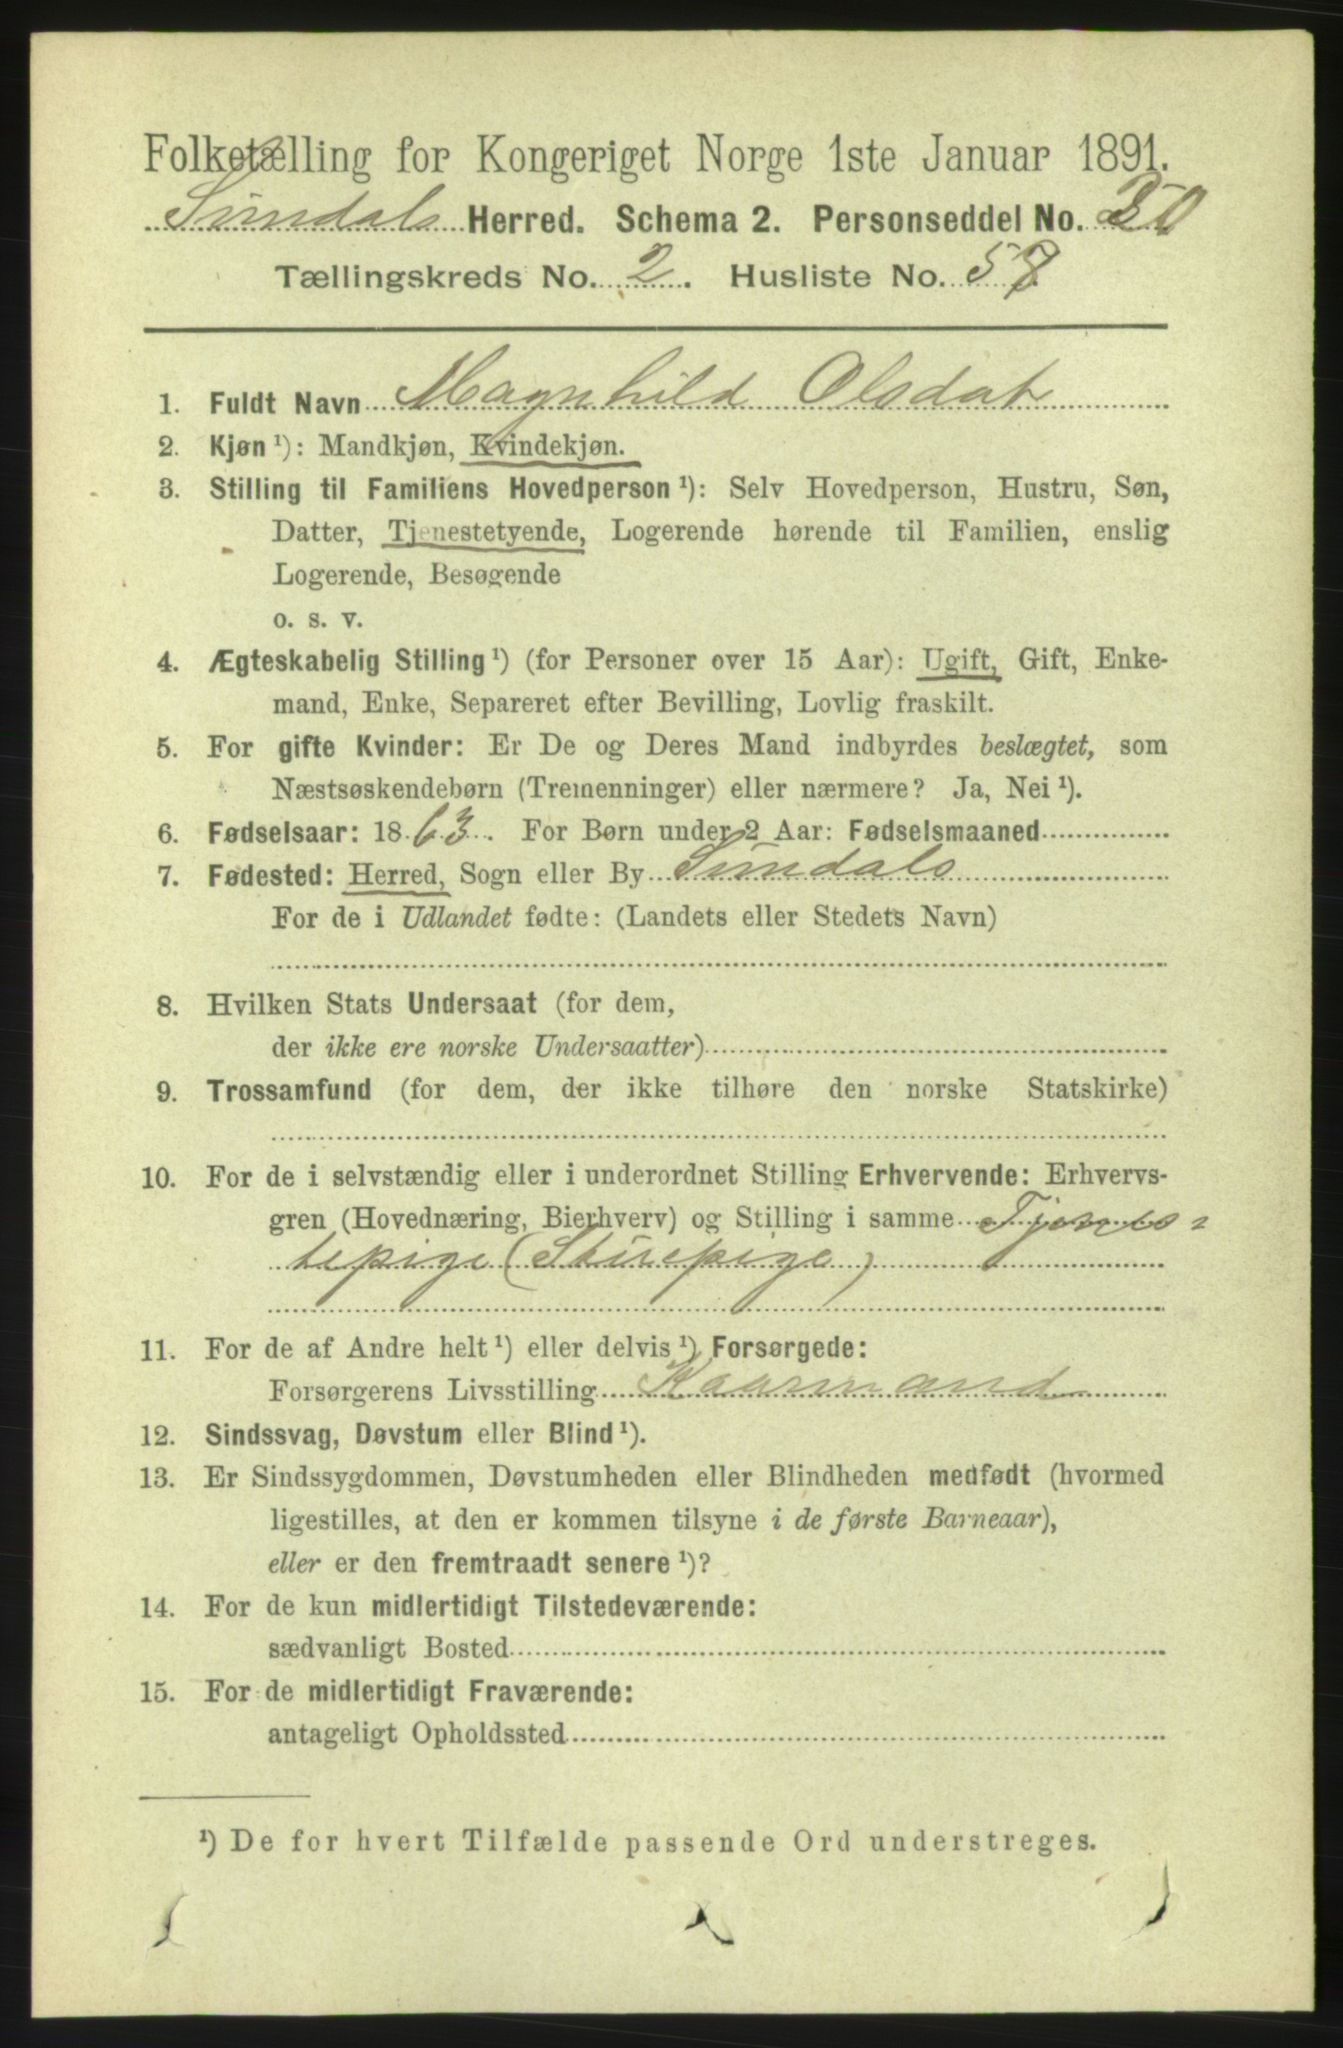 Folketælling for Kongeriget Norge 1ste Januar 1891.
Sundals Herred. Schema 2. Personseddel No.
Tællingskreds No. 2. Husliste No. 57
1. Fuldt Navn Magnhild Olsdat
2. Kjøn ¹): Mandkjøn, Kvindekjøn.
3. Stilling til Familiens Hovedperson ¹): Selv Hovedperson, Hustru, Søn,
Datter, Tjenestetyende, Logerende hørende til Familien, enslig
Logerende, Besøgende
o. s. v.
4. Ægteskabelig Stilling ¹) (for Personer over 15 Aar): Ugift, Gift, Enke-
mand, Enke, Separeret efter Bevilling, Lovlig fraskilt.
5. For gifte Kvinder: Er De og Deres Mand indbyrdes beslægtet, som
Næstsøskendebørn (Tremenninger) eller nærmere? Ja, Nei ¹).
6. Fødselsaar: 1863. For Børn under 2 Aar: Fødselsmaaned
7. Fødested: Herred, Sogn eller By Sundals
For de i Udlandet fødte: (Landets eller Stedets Navn)
8. Hvilken Stats Undersaat (for dem,
der ikke ere norske Undersaatter)
9. Trossamfund (for dem, der ikke tilhøre den norske Statskirke)
10. For de i selvstændig eller i underordnet Stilling Erhvervende: Erhvervs-
gren (Hovednæring, Bierhverv) og Stilling i samme Tjenes=
tepige (Stuepige)
11. For de af Andre helt ¹) eller delvis ¹) Forsørgede:
Forsørgerens Livsstilling Kaarmand
12. Sindssvag, Døvstum eller Blind ¹).
13. Er Sindssygdommen, Døvstumheden eller Blindheden medfødt (hvormed
ligestilles, at den er kommen tilsyne i de første Barneaar),
eller er den fremtraadt senere ¹)?
14. For de kun midlertidigt Tilstedeværende:
sædvanligt Bosted
15. For de midlertidigt Fraværende:
antageligt Opholdssted
¹) De for hvert Tilfælde passende Ord understreges.